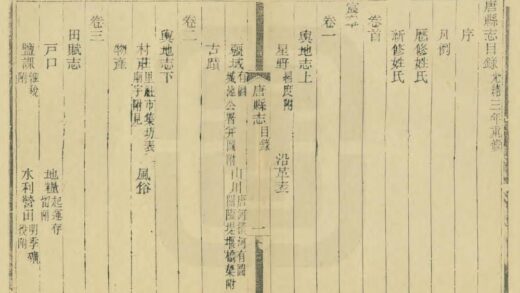 唐縣志目錄 光緒三年重修
序
凡例
歷修姓氏
新修姓氏
卷首
宸章
卷一
輿地志上
星野 晷度附 沿革表
疆域 有圖 城池公署附 山川 唐河 有圖 關隘堤堰橋樑附
唐縣志 目錄 一
古蹟
卷二
輿地志下
村莊 里社市集功表 廟宇附見 風俗
物產
卷三
田賦志
戶口 地糧 起運存留附
鹽課 附 水利營田 明季礦役附